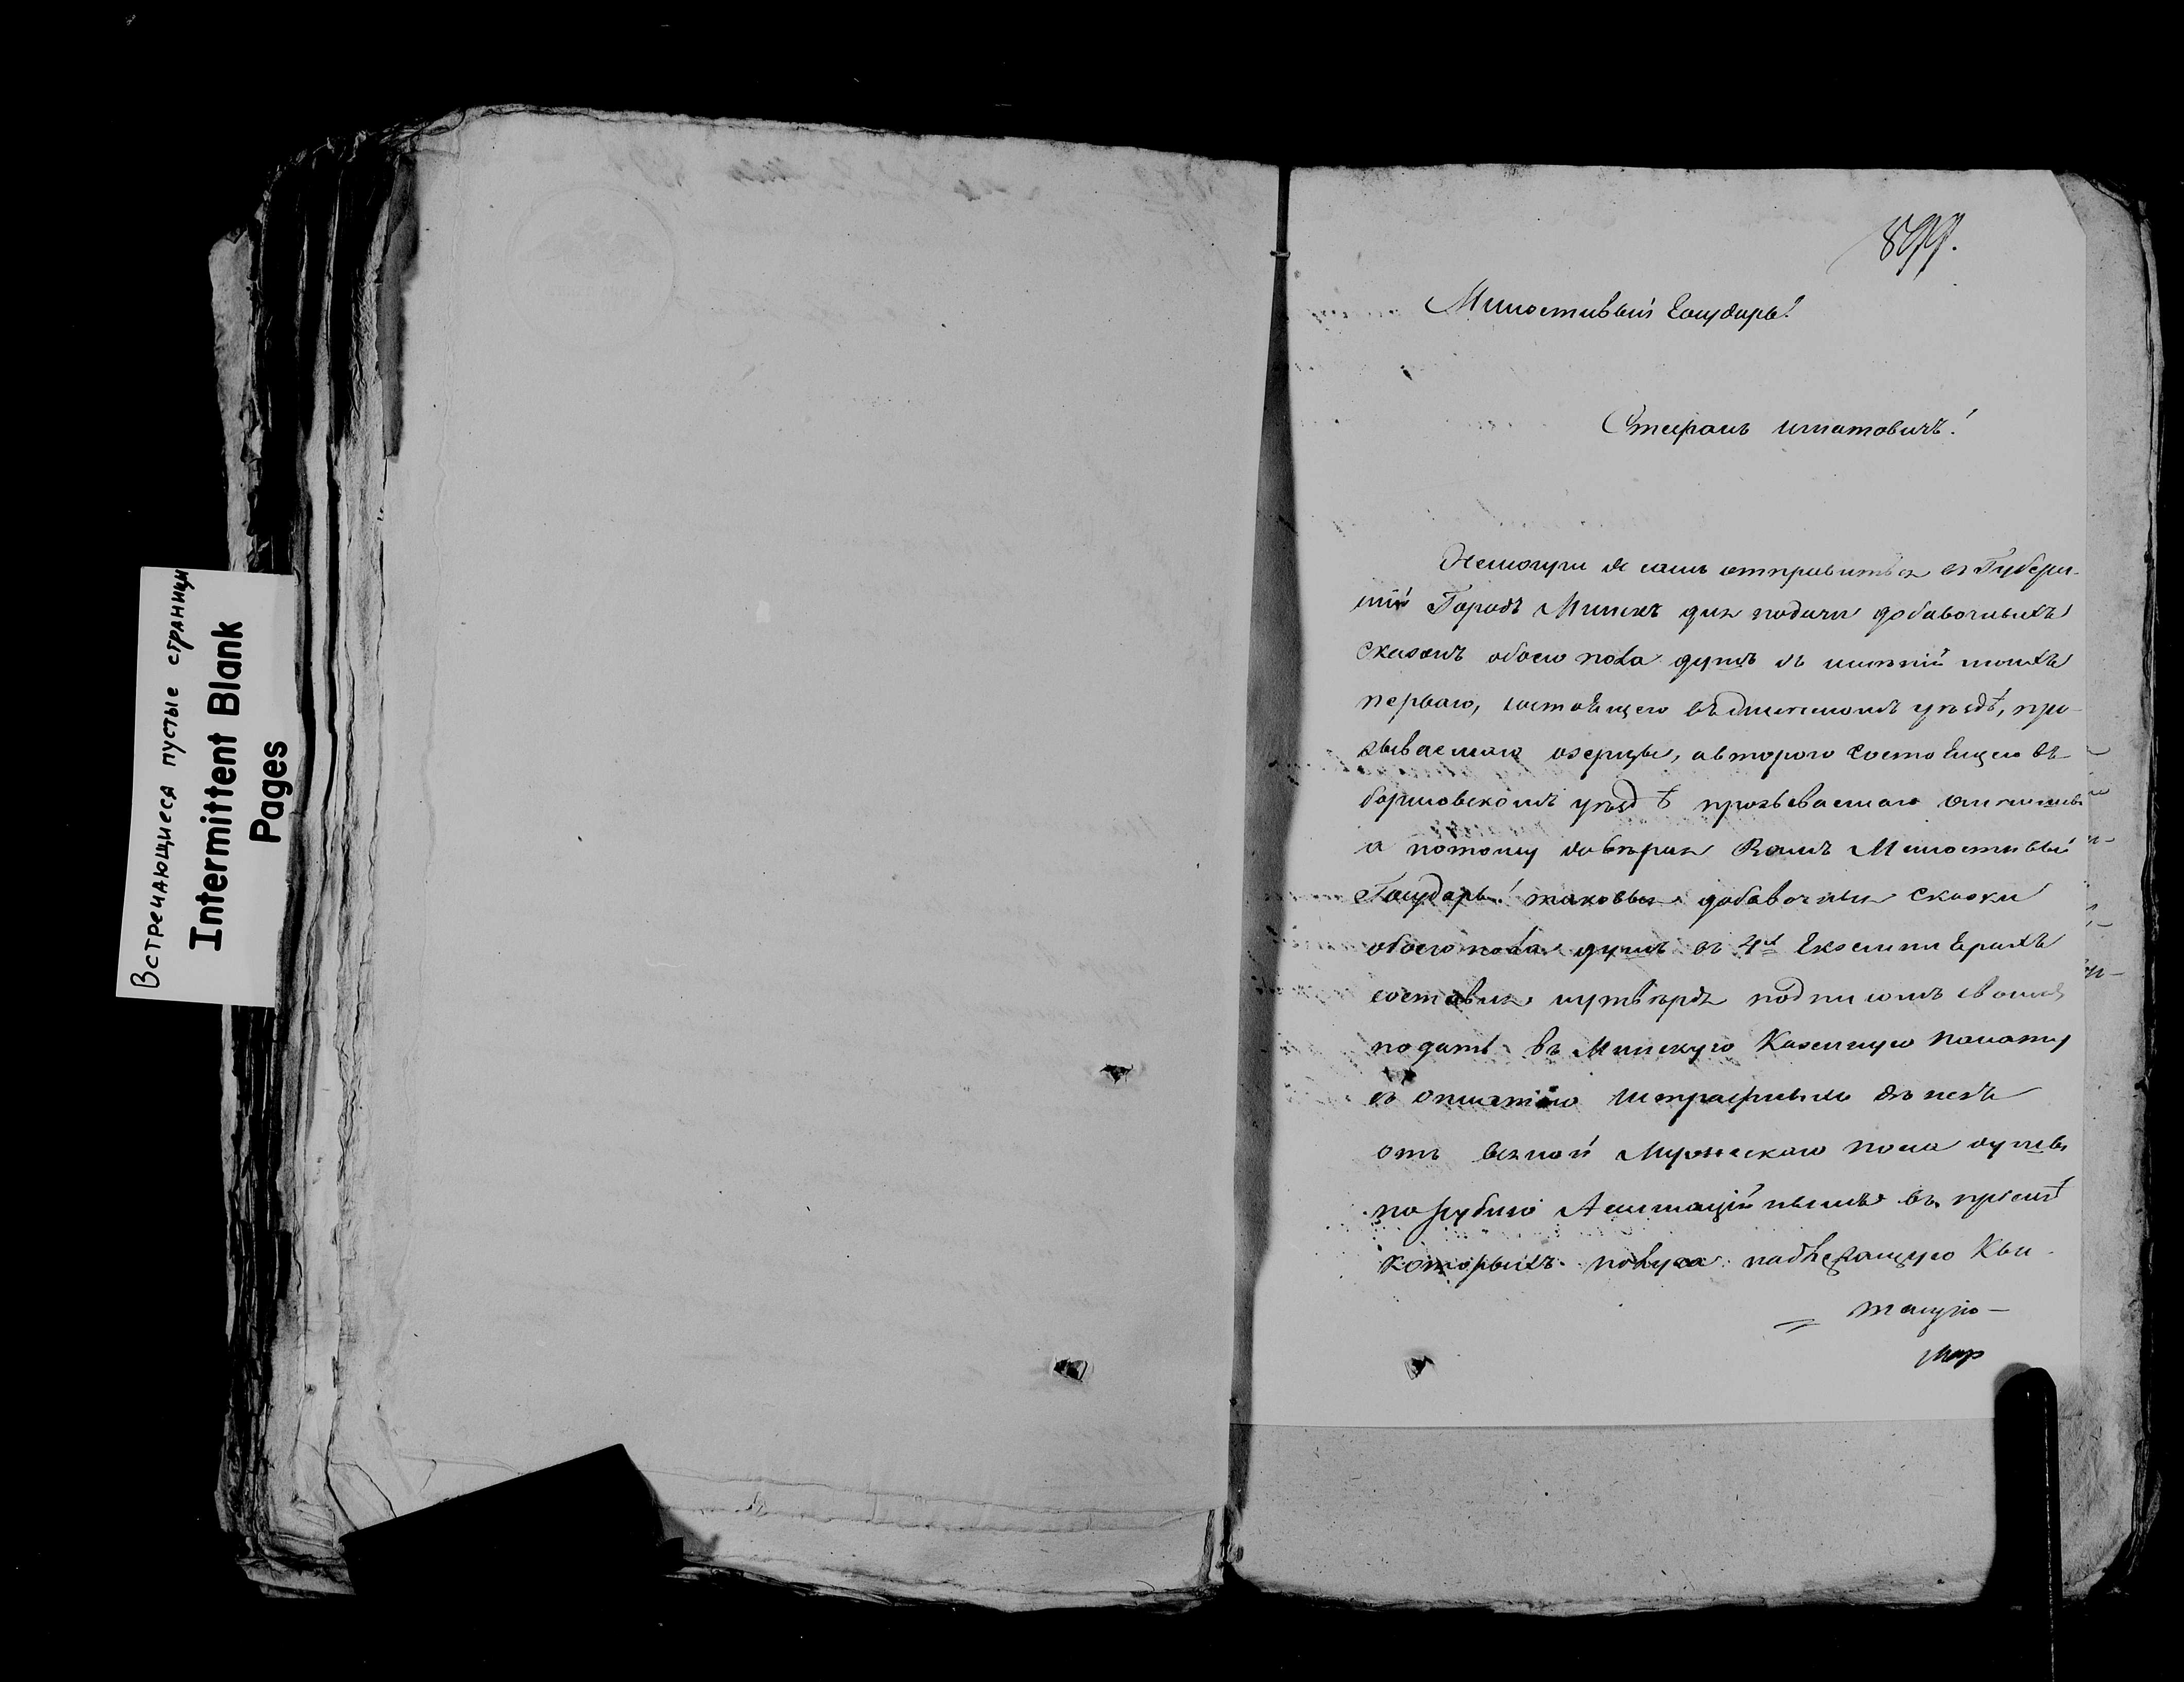 Встречающиеся пустые страницы
Intermittent Blank
Pages
899.
Милостивый Государь!
Стефанъ Игнатовичъ!
Немогучи я самъ отправиться въ Губерн-
ній Городъ Минскъ для подачи добавочныхъ
сказокъ обоего пола душъ въ имѣній моихъ
перваго, состоящего въ уѣздѣ, про-
зываемаго озерцы, авторого состоящего въ
борисовскомъ уѣздѣ прозываемаго
а потому довѣряю Вамъ Милостивый
Государь! таковыя добавочныя сказки
обоего пола душъ въ 4хъ Екземплярахъ
составя иутвердя подписомъ своимъ
подать въ Минскую Казенную Палату
съ оплатою штрафныхъ денегъ
отъ всякой Мужескаго пола душы
по рублю Ассигнаційнымъ въ пріемѣ
которыхъ получа надлежащую Кви-
танцію —